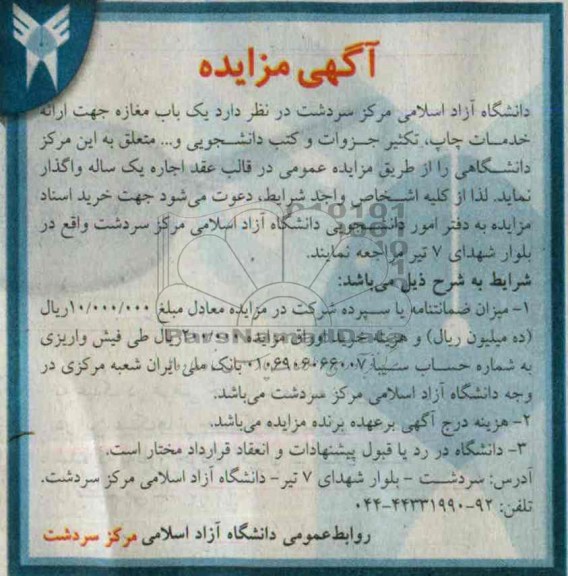 آگهی مزایده
دانشگاه آزاد اسلامی مرکز سردشت در نظر دارد یک باب مغازه جهت ارائه
خدمات چاپ، تکثیر جزوات و کتب دانشجویی و... متعلق به این مرکز
دانشگاهی را از طریق مزایده عمومی در قالب عقد اجاره یک ساله واگذار
نماید. لذا از کلیه اشخاص واجد شرایط، دعوت می‌شود جهت خرید اسناد
مزایده به دفتر امور دانشجویی دانشگاه آزاد اسلامی مرکز سردشت واقع در
بلوار شهدای ۷ تیر مراجعه نمایند.
شرایط به شرح ذیل می‌باشد:
۱- میزان ضمانتنامه یا سپرده شرکت در مزایده معادل مبلغ ۱۰/۰۰۰/۰۰۰ ریال
(ده میلیون ریال) و هزینه خرید اوراق مزایده ریال طی فیش واریزی
به شماره حساب سیبا بانک ملی ایران شعبه مرکزی در
وجه دانشگاه آزاد اسلامی مرکز سردشت می‌باشد.
۲- هزینه درج آگهی برعهده برنده مزایده می‌باشد.
۳- دانشگاه در رد یا قبول پیشنهادات و انعقاد قرارداد مختار است.
آدرس: سردشت - بلوار شهدای ۷ تیر- دانشگاه آزاد اسلامی مرکز سردشت.
تلفن: ۹۲-۴۴۳۳۱۹۹۰-۰۴۴
روابط‌عمومی دانشگاه آزاد اسلامی مرکز سردشت